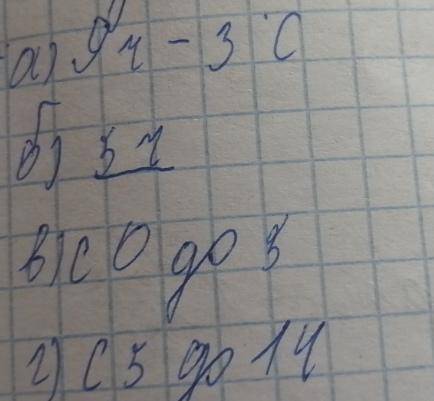 а) 9ч - 3°С
б) 5 ч
в) с 0 до 5
г) с 5 до 14